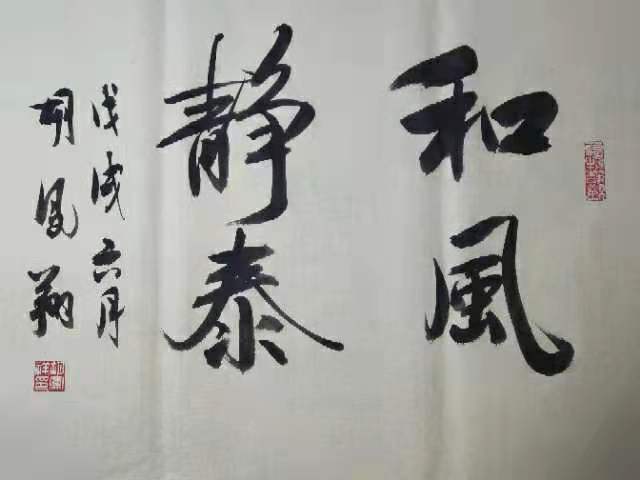 和風
静泰
戊戌六月
胡凤翔